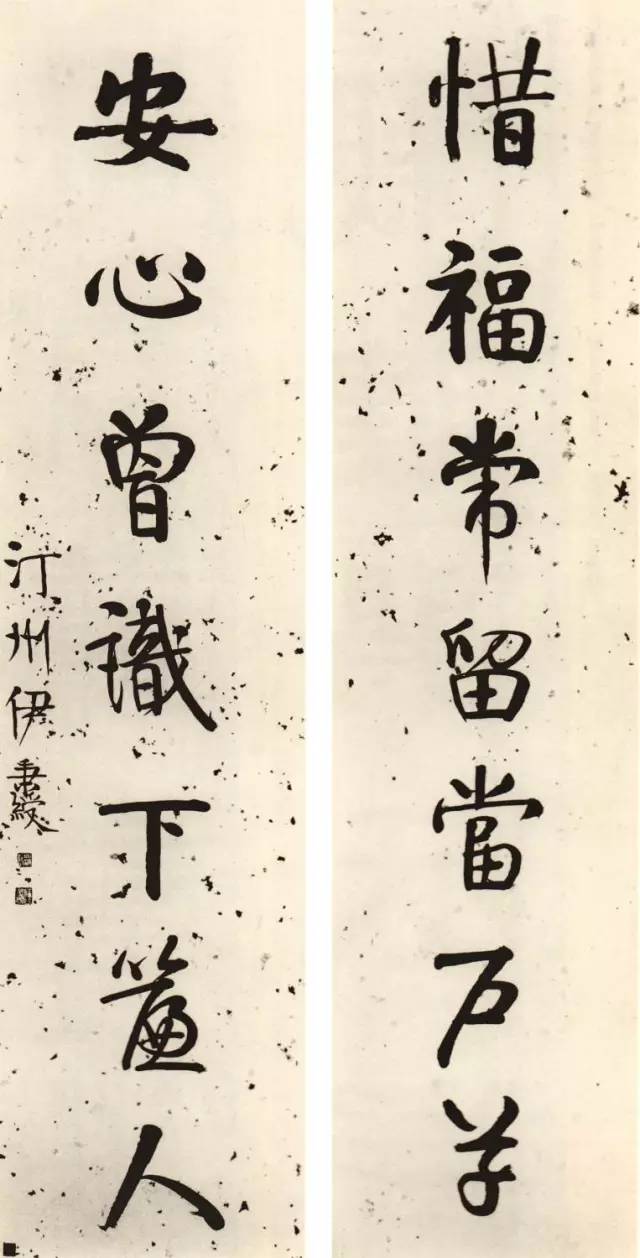 惜福常留當户草
安心曾識下簾人
汀州伊秉綬